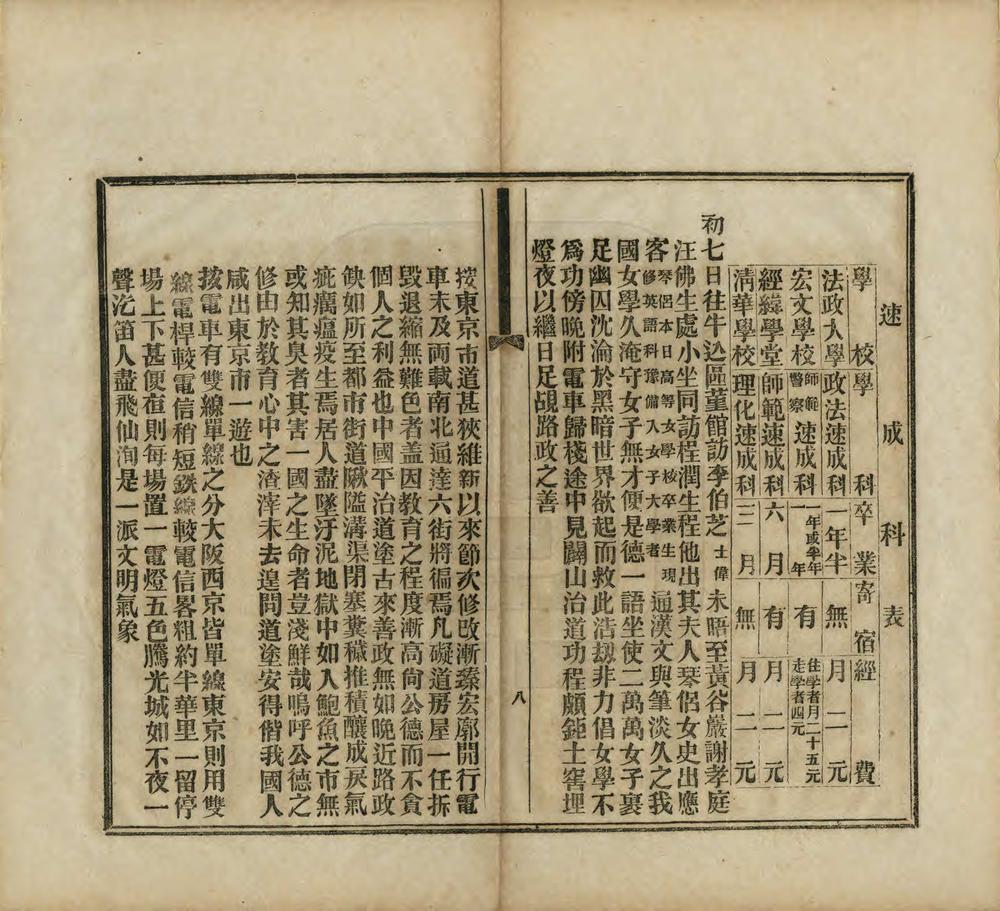 速成科表
學校 學科 卒業 寄宿 經費
法政大學 政法速成科 一年半 無 月二元
宏文學校 師範警察速成科 一年或半年 有 住學者月二十五元走學者四元
經緯學堂 師範速成科 六月 有 月二元
清華學校 理化速成科 三月 無 月二元
初七日往牛込區菫館訪李伯芝士偉未晤至黃谷嚴謝孝庭
汪佛生處小坐同訪程潤生程他出其夫人琹侶女史出應
客琴侶本日高等女學校卒業生現修英語科豫備入女子大學者通漢文與筆淡久之我
國女學久淹守女子無才便是德一語坐使二萬萬女子裹
足幽囚沈淪於黑暗世界欲起而救此浩刼非力倡女學不
爲功傍晚附電車歸棧途中見闢山治道功程頗鉅土窖埋
燈夜以繼日足覘路政之善
八
按東京市道甚狹維新以來節次修改漸臻宏廓開行電
車未及兩載南北通達六街將徧焉凡礙道房屋一任拆
毀退縮無難色者盖因教育之程度漸高尙公德而不貪
個人之利益也中國平治道塗古來善政無如晚近路政
缺如所至都市街道湫隘溝渠閉塞糞穢推積釀成戾氣
疵癘瘟疫生焉居人盡墜汙泥地獄中如入鮑魚之市無
或知其臭者其害一國之生命者豈淺鮮哉嗚呼公德之
修由於教育心中之渣滓未去遑問道塗安得偕我國人
咸出東京市一遊也
按電車有雙線單線之分大阪西京皆單線東京則用雙
線電桿較電信稍短鉄線較電信畧粗約半華里一留停
場上下甚便夜則每場置一電燈五色騰光城如不夜一
聲汽笛人盡飛仙洵是一派文明氣象